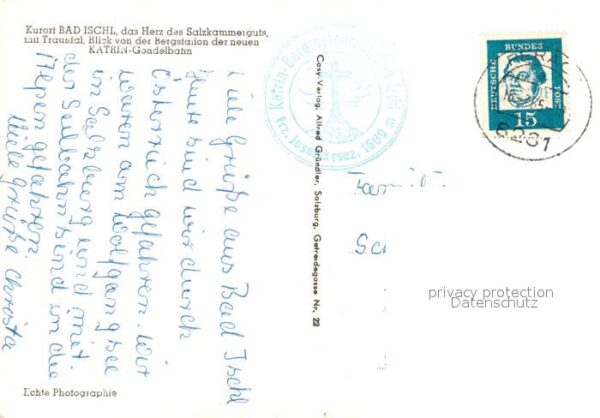 Kurort BAD ISCHL, das Herz des Salzkammerguts,
mit Trauntal, Blick von der Bergstation der neuen
KATRIN-Gondelbahn
Viele Grüße aus Bad Ischl
Heute sind wir durch
Österreich gefahren. Wir
waren am Wolfgangsee
in Salzburg und mit
der Seilbahn sind in die
Alpen gefahren
Viele Grüße Christa
Echte Photographie
Cosy-Verlag, Alfred Gründler, Salzburg, Getreidegasse Nr. 22
Katrin-Bergstation Bad Ischl
Frz. Josef Kreuz, 1909 m
DEUTSCHE
BUNDES
POST
15
8231
Famil
privacy protection
Datenschutz